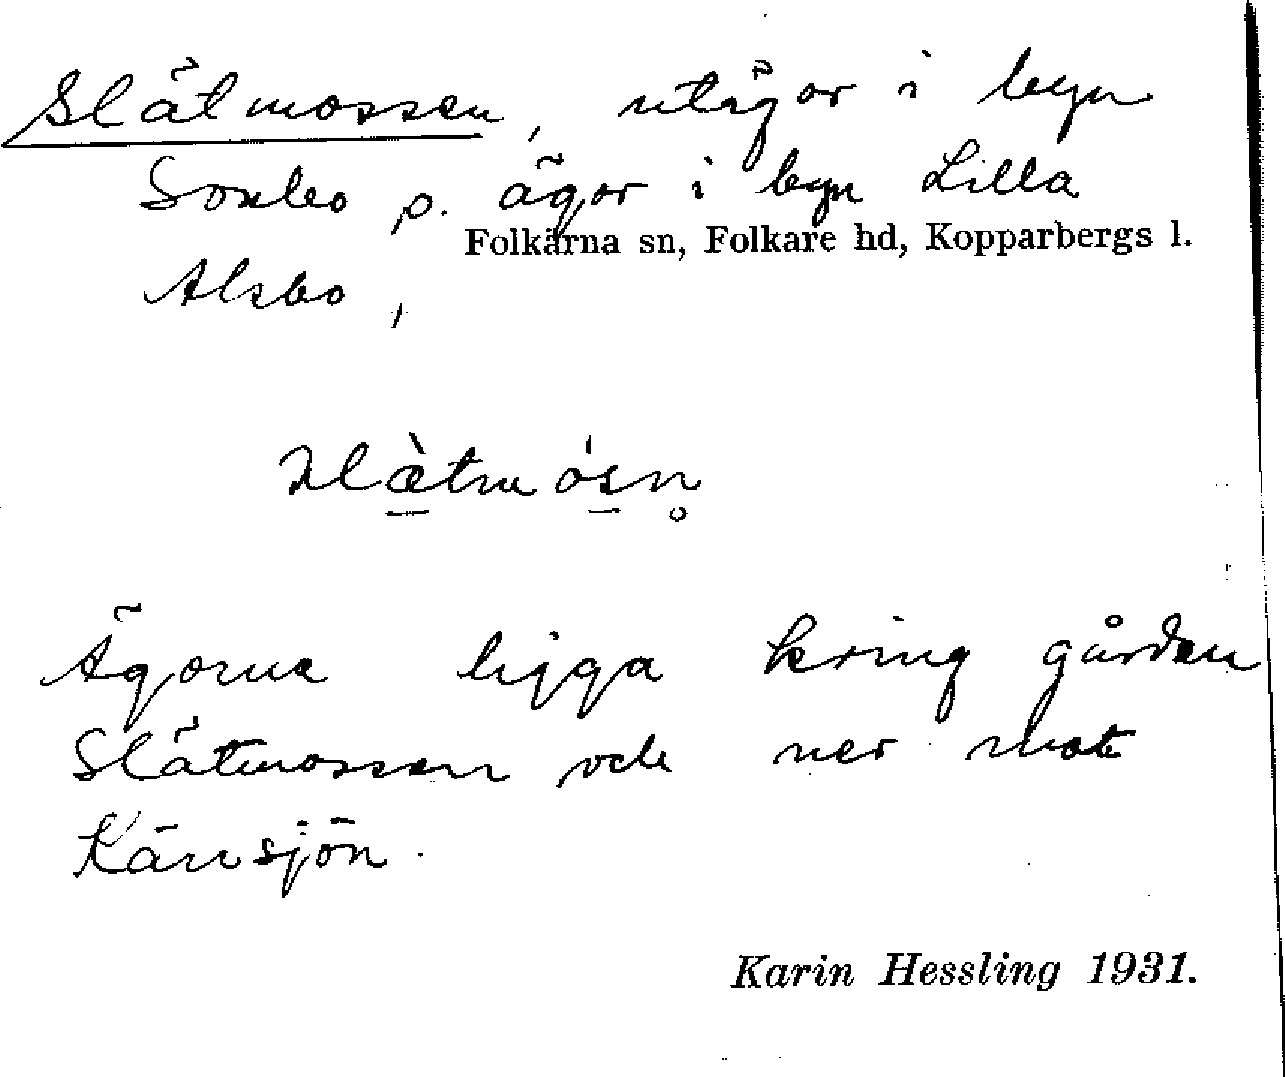 Slätmossen, utägor i byn
Sonbo o. ägor i byn Lilla
Folkärna sn, Folkare hd, Kopparbergs l.
Alsbo,
Ägorna ligga kring gården
Slätmossen och ner mot
Kärrsjön.
Karin Hessling 1931.